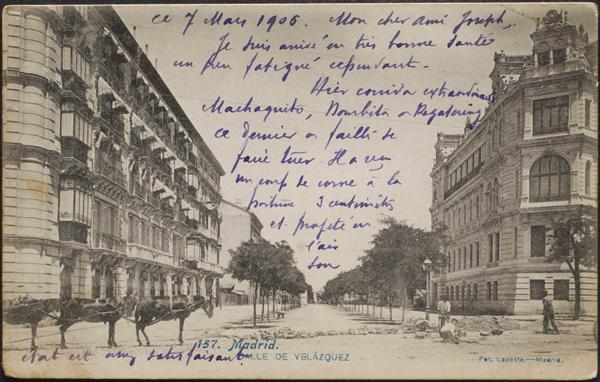 ce 7 Mars 1906. Mon cher ami Joseph,
Je suis arrivé en très bonne santé
un peu fatigué cependant.
Hier corrida extraordinaire
Machaquito, Bombita &
ce dernier a failli se
faire tuer. Il a reçu
un coup de corne à la
poitrine 3 centimètres
et projeté en
l'air
son
état est assez satisfaisant.
157. Madrid.
CALLE DE VELÁZQUEZ
Fot. Lacoste.—Madrid.